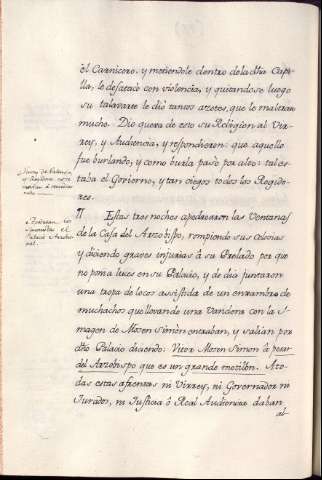 el Carnicero, y metiendole dentro de la dha Capi-
lla, le desatacò con violencia, y quitandose luego
su talavarte le dio tantos azotes, que le maltrato
mucho. Dio quexa de esto su Religion al Vir-
rey, y Audiencia, y respondieron: que aquello
fue burlando, y como burla pasò por alto: tal es-
taba el Govierno, y tan ciegos todos los Regido-
res.
¶ Estas tres noches apedrearon las Ventanas
de la Casa del Arzobispo, rompiendo sus celosias
y diciendo graves injurias à su Prelado por que
no ponia luces en su Palacio, y de dia juntaron
una tropa de locos assistida de un enxambre de
muchachos que llevando una Vandera con la I-
magen de Mosen Simòn entraban, y salian por
dho Palacio diciendo: Vitor Mosen Simon à pesar
del Arzobispo que es un grande motilon. A to-
das estas afrentas ni Virrey, ni Governador ni
Jurados, ni Justicia ò Real Audiencia daban
al-
Palacio Arzobis-
pal.